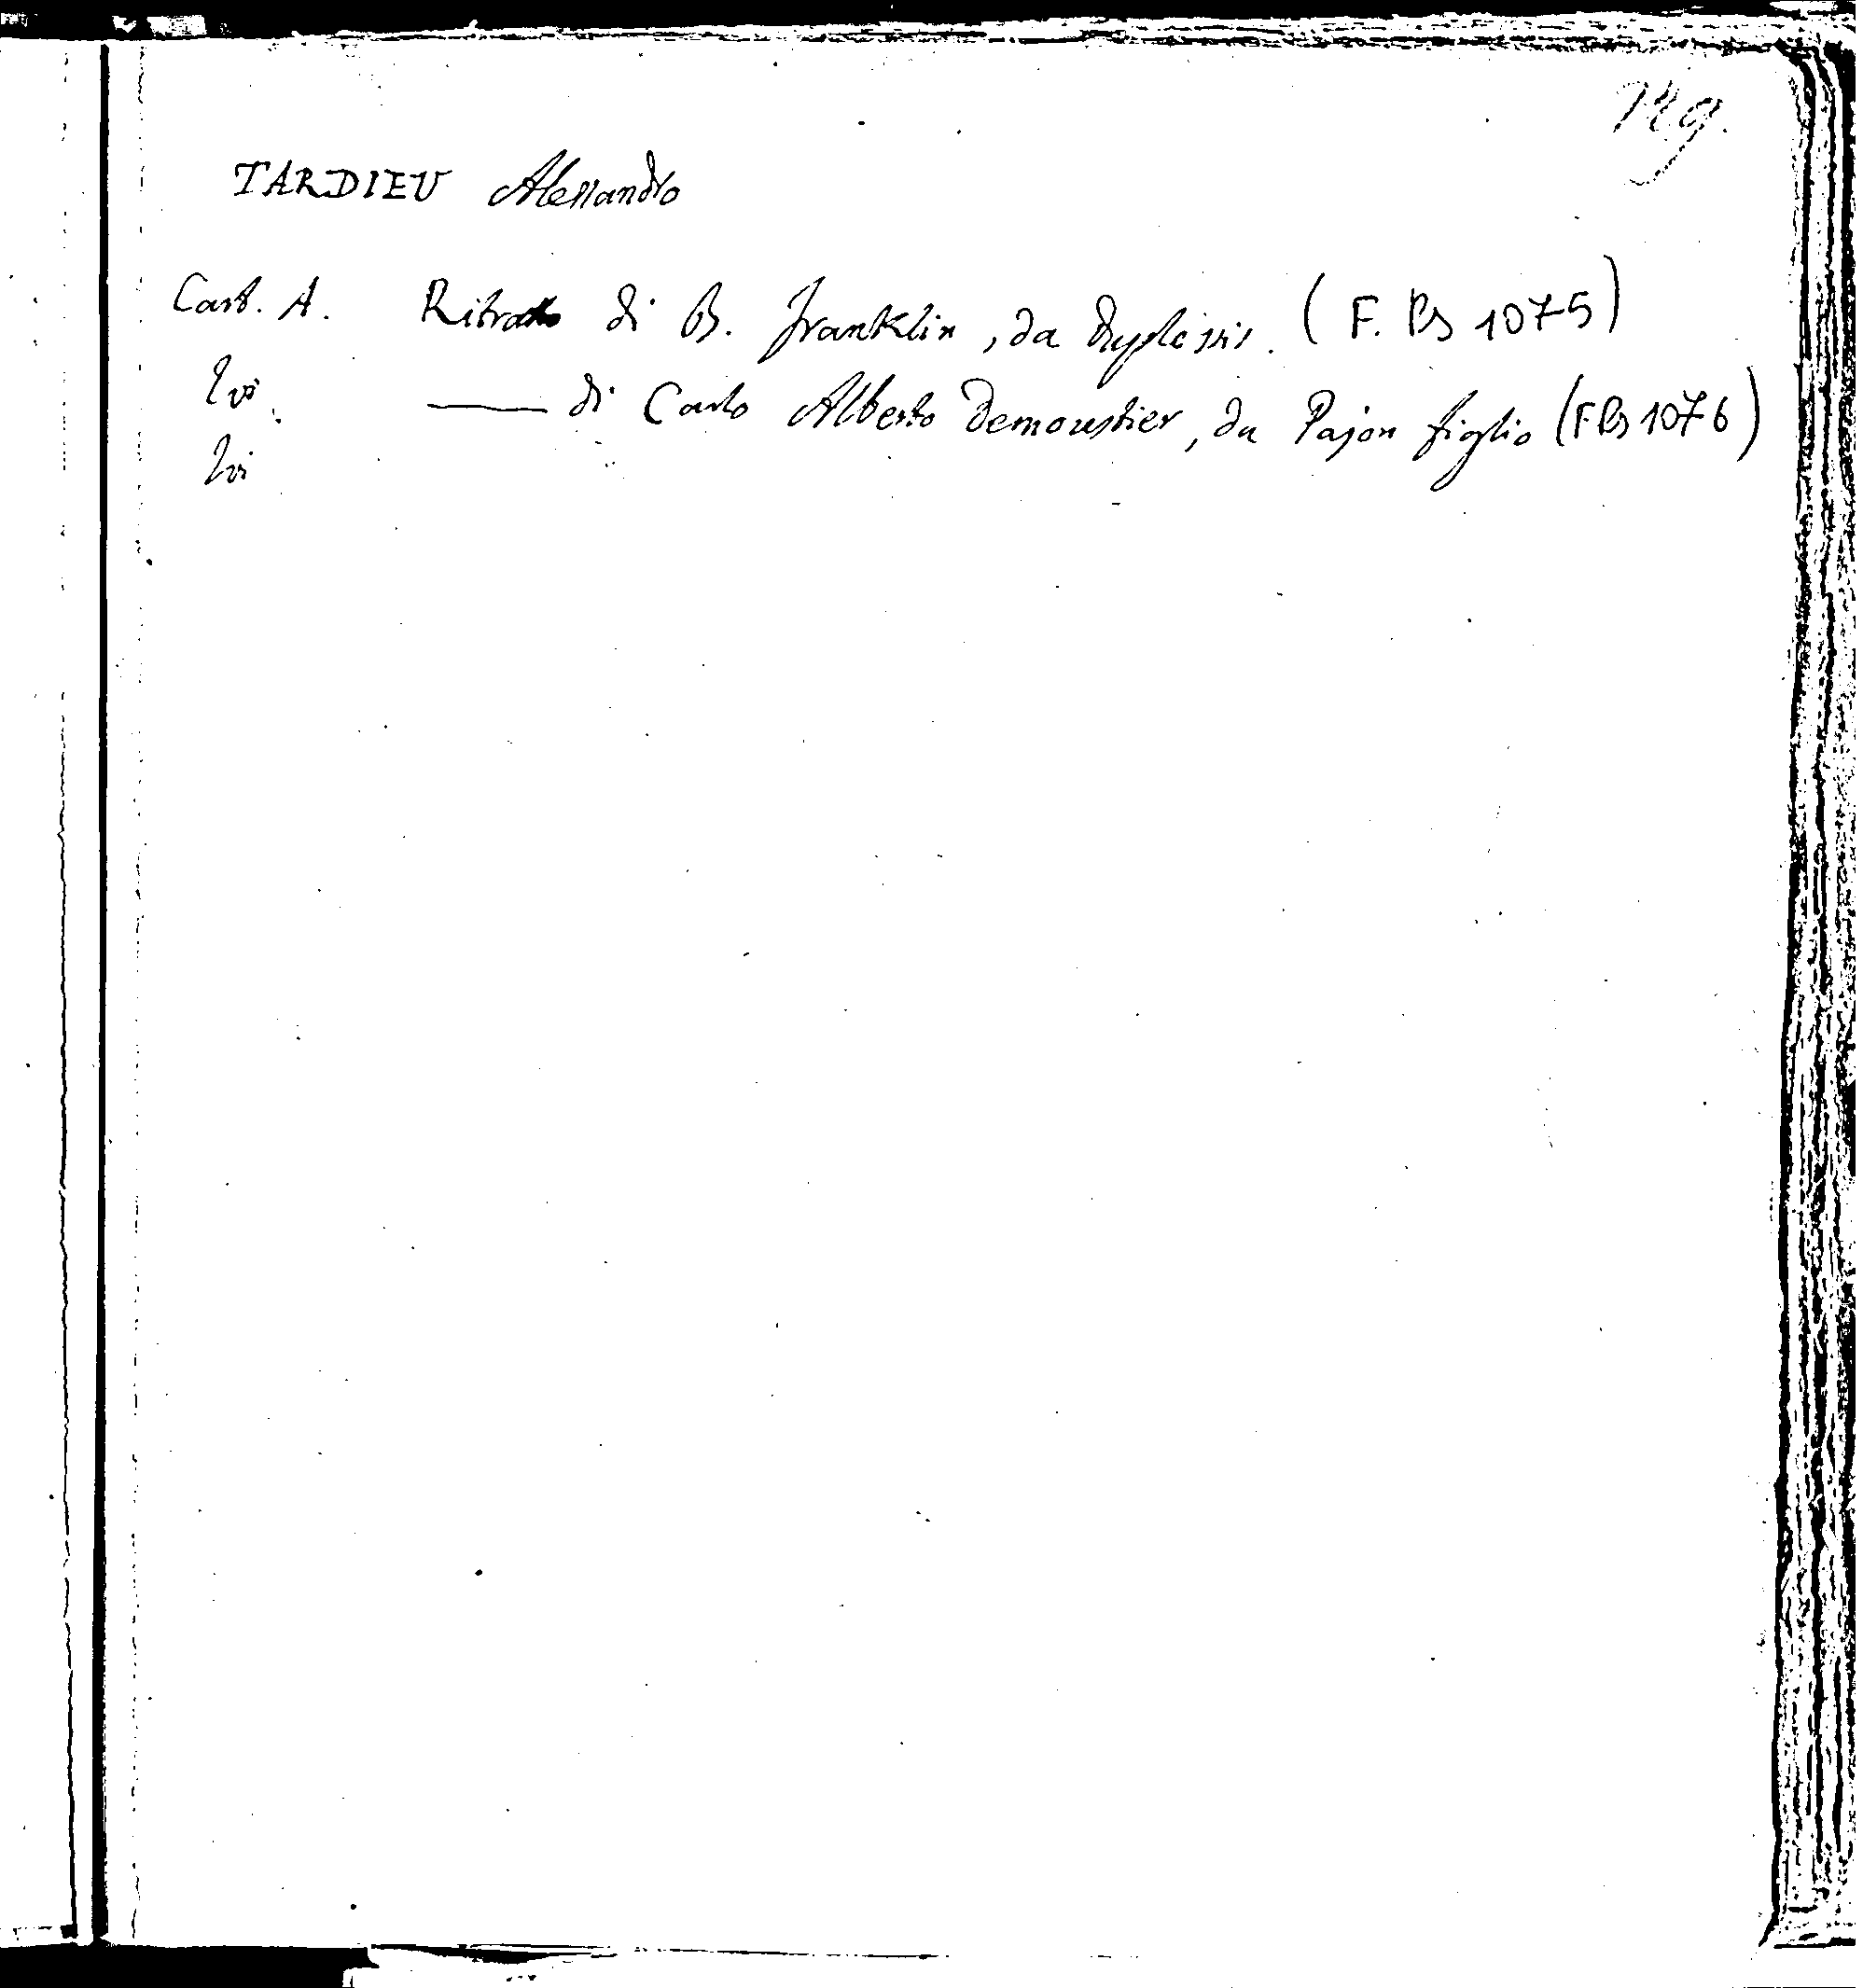 149.
TARDIEU Alessandro
Cart. A. Ritratto di B. Franklin, da Duplessis. (F. Bs 1075)
Ivi. —— di Carlo Alberto Demoustier, da Pajou figlio (F Bs 1076)
Ivi